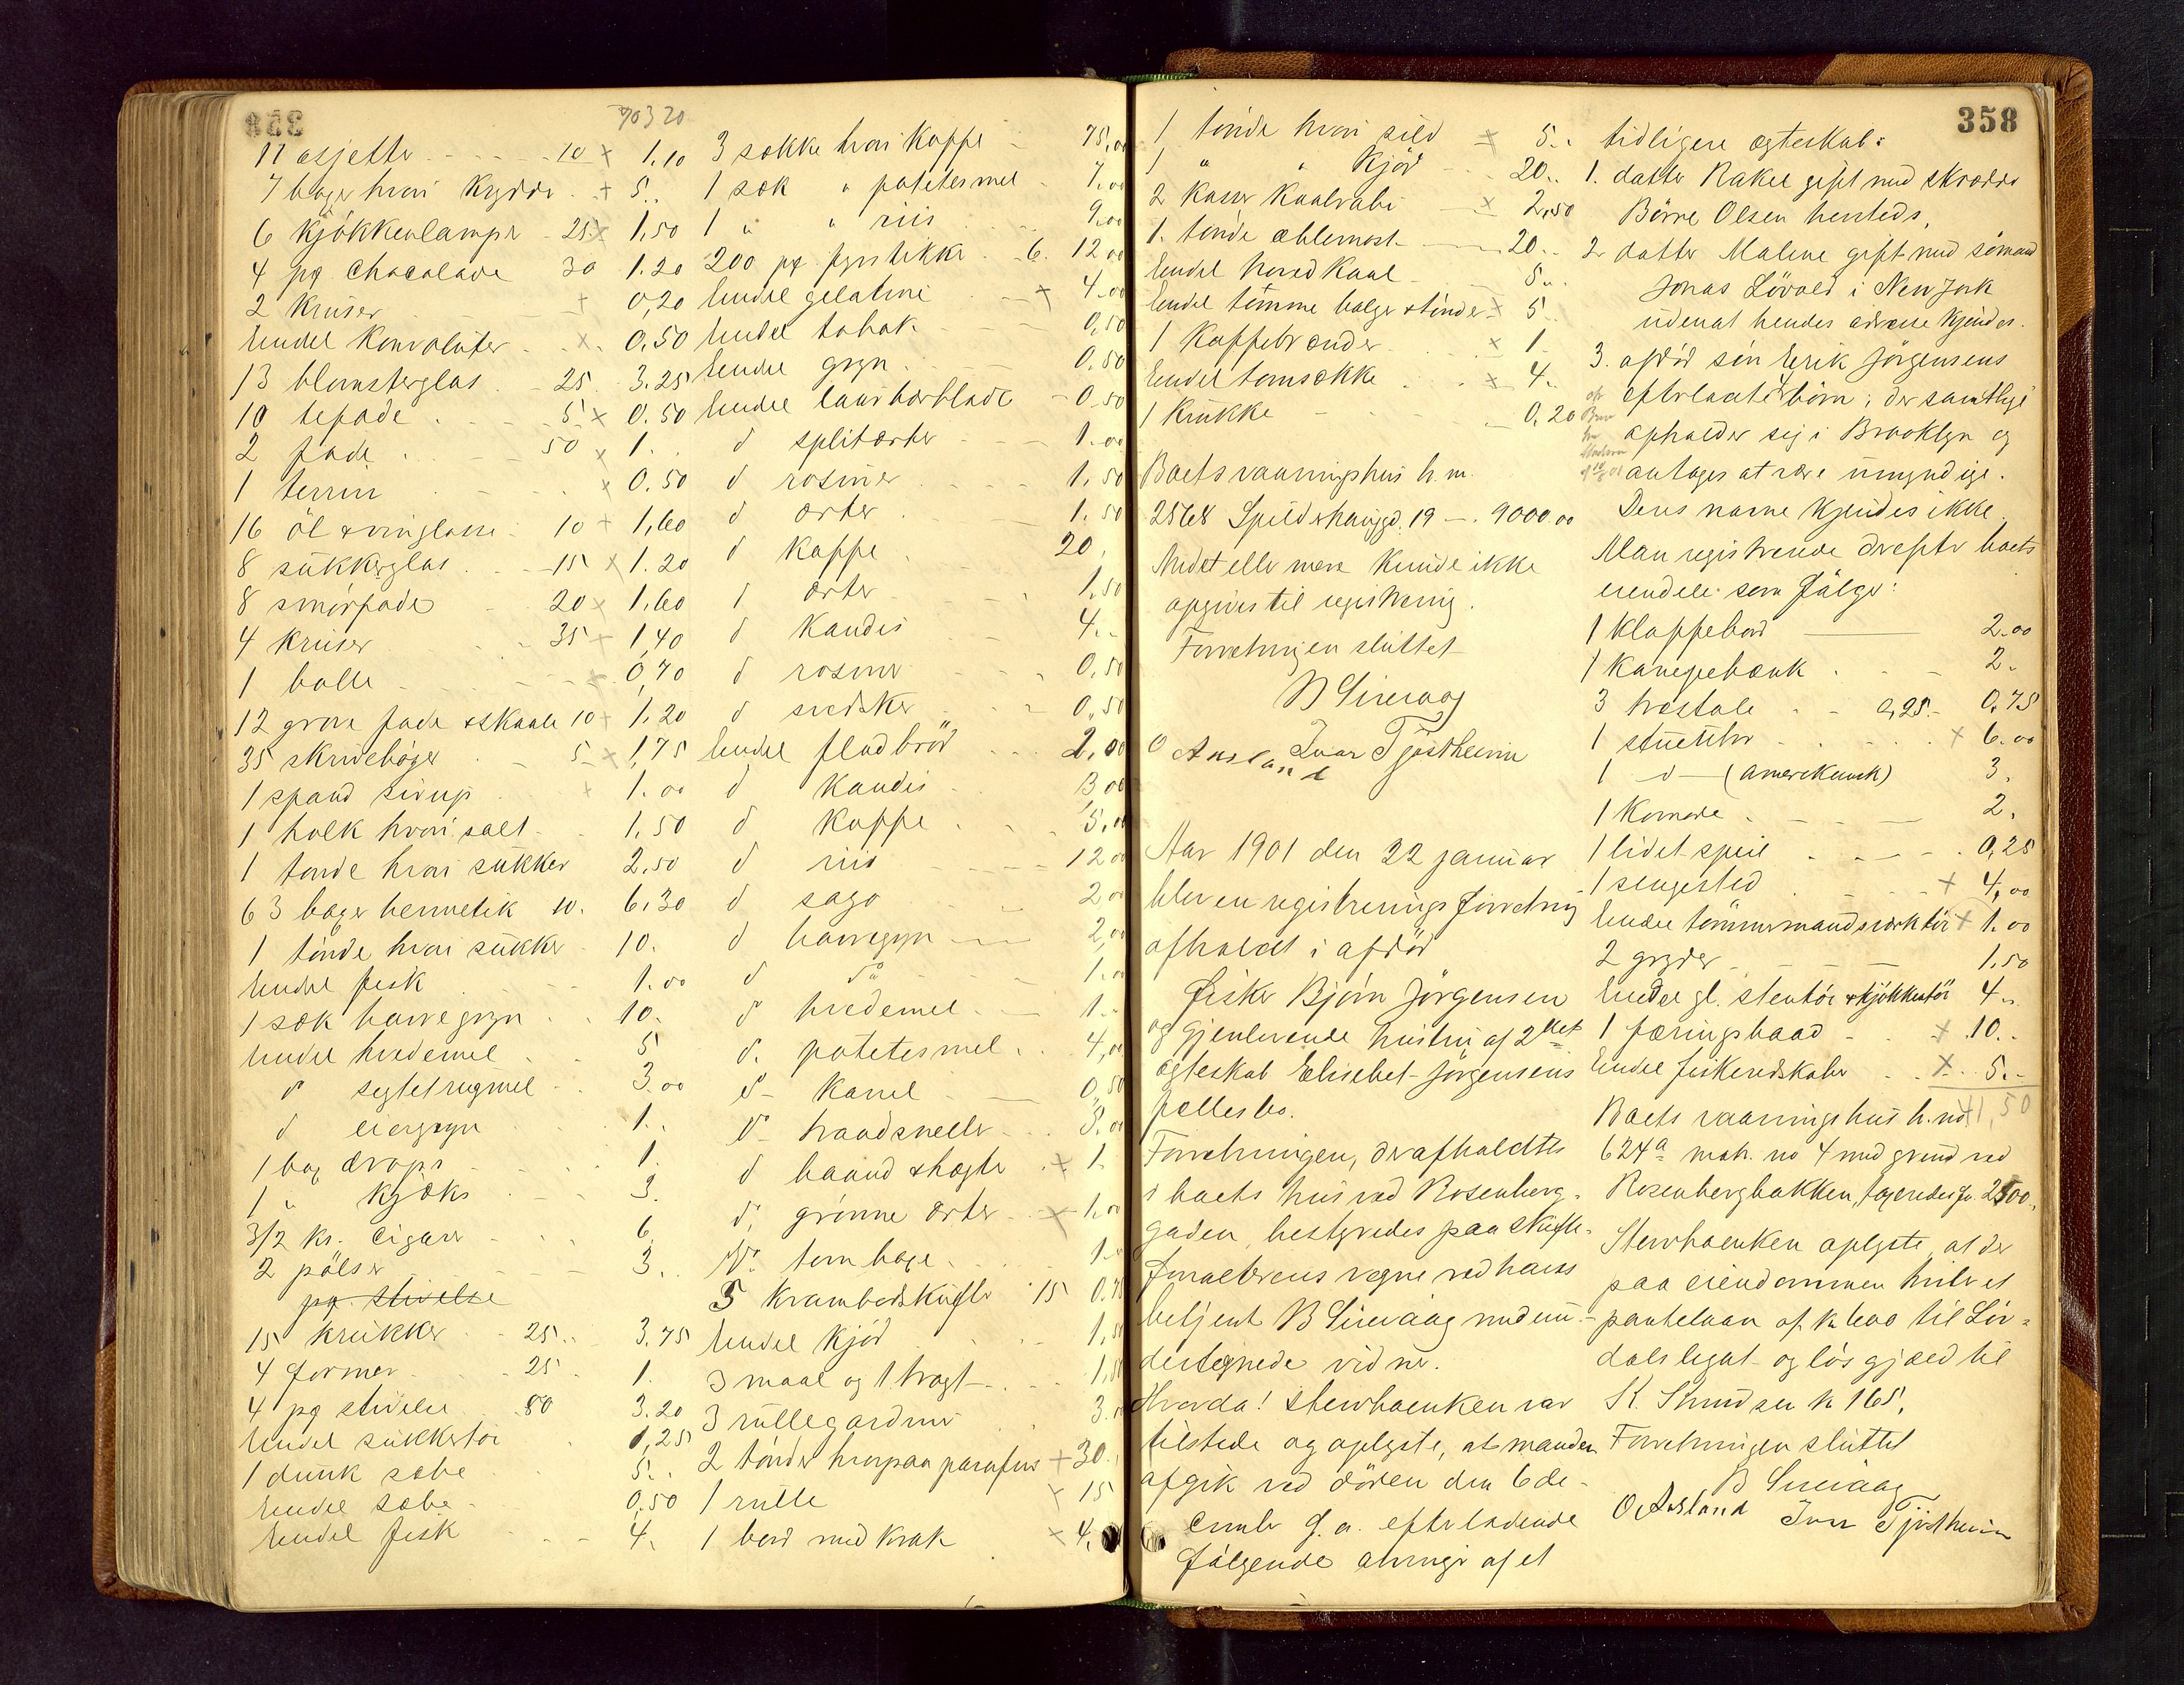 70320
11 asjetter 10 x 1.10
7 bager hvori Krydder + 5..
6 Kjökkenlamper 25 x 1,50
4 pg. Chocolade 30 1.20
2 Kruser + 0,20
Endel Konvoluter x. 0.50
13 blomsterglas 25 3.25
10 tefade 5 x 0.50
2 fade 50 x 1.
1 terrin x 0.50
16 öl & vinglasse 10 + 1,60
8 sukkerglas 15 x 1.20
8 smörfade 20 x 1.60
4 Kruser 35 + 1,40
1 bolle 0,70
12 grove fade & skaale 10 + 1.20
35 skrivebøger 5 x 1,75
1 spand sirup + 1.00
1 holk hvori salt 1.50
1 tønde hvori sukker 2.50
63 bøger hermetik 10. 6.30
1 tönde hvori sukker 10.
Endel fisk 1.00
1 sæk havregryn 10.
Endel hvedemel 5
do sigtet rugmel 3.00
d eiergryn 1..
1 bag drops 1.
1 " Kjæks 3.
3/2 Ks. Cigarer 6.
2 pölser 3.
pg. stivelse
15 krukker 25.. 3.75
4 former 25 1.
4 pg stivelse 80 3.20
Endel sukkertöi 1,25
1 dunk sæbe 5..
Endel sæbe 0.50
Endel fisk 4.
3 sække hvori Kaffe 75,00
1 sæk " potetesmel 7.00
1 " " riis 9.00
200 pg. fyrstikker 6. 12.00
Endel gelatine + 4.00
Endel tobak 0,50
Endel gryn 0.50
Endel laurbærblade 0.50
d splitærter 1.00
d rosiner 1.50
d ærter 1.50
d kaffe 20.
1 ærter 1.50
d Kandis 4..
d rosiner 0.50
d svedsker 0.50
Endel fladbröd 2.00
d Kandis 3.00
d Kaffe 5.00
d riis 12.00
d sago 2.00
d havregryn 2,00
d do 1.00
d hvedemel 1..
d. potetesmel 4,00
d- Kanel 0,50
d- traadsneller 5.00
d baand & hægter + 1.
d. grönne ærter x 1.00
d. tom bage 1.
5 Krambodskuffer 15 0.75
Endel Kjöd 1,50
3 maal og 1 tragt 1,50
3 rullegardiner 3.00
2 tönder hvorpaa parafin + 30.
1 rulle x 15
1 bord med Krak x 4.
358
1 tönde hvori sild x 5..
1 " " Kjöd 20..
2 Kasser Kaalrabi x 2,50
1. tönde æblemost 20..
Endel hoved Kaal 5..
Endel tömme balger & tönder x 5
1 Kaffebrænder x 1
Endel tomsække x 4.
1 Krukke 0.20
Boets vaaningshus h.m.
2568 Spilderhauggd. 19 — . 9000.00
Andet eller mere kunde ikke
opgives til registrering.
Forretningen sluttet
B Sirevaag
O Ausland Ivar Tjöstheim
Aar 1901 den 22 januar
blev en registrerings forretning
afholdt i afdöd
fisker Bjørn Jörgensen
og gjenlevende hustru af 2det
ægteskab Elisebet Jörgensens
fællesbo.
Forretningen, der afholdtes
i boets hus ved Rosenberg-
gaden, bestyredes paa Skifte-
forvalterens vegne ved hans
betjent B Sirevaag med un-
dertegnede vidner.
Hvorda! Stervboenken var
tilstede og oplyste, at manden
afgik ved döden den 6 de-
cember f. a. efterladende
fölgende arvinger af et
tidligere ægteskab:
1. datter Rakel gift med skrædder
Börre Olsen hersteds,
2. datter Malene gift med sömand
Jonas Lövold i New York
uden at hendes adresse kjendes.
3. afdöd sön Erik Jörgensens
efterladte 4 börn; der samtlige
opholder sig i Brooklyn og
antages at være umyndige.
Deres navne kjendes ikke.
Man registrerede derefter boets
eiendele som fölger:
1 Klaffebord 2.00
1 Kanapebænk 2.
3 træstole 0,25 0,75
1 stueuhr + 6.00
1 d (amerikansk) 3.
1 Komode 2.
1 lidet speil 0,25
1 sengested + 4,00
Endel tömmermandsværktöi + 1.00
2 gryder 1,50
Endel gl. stentöi & kjökkentöi 4..
1 færingsbaad + 10..
Endel fiskeredskaber x 5..
41,50
Boets vaaningshus h. no
624a matr. no 4 med grund ved
Rosenbergbakken, taxeredes for 2500.
Stervboenken oplyste, at der
paa eiendommen hviler et
pantelaan af kr 600 til Lir-
dals legat og lös gjæld til
K. Knudsen kr 165.
Forretningen sluttet
B Sirevaag
O Ausland Ivar Tjöstheim